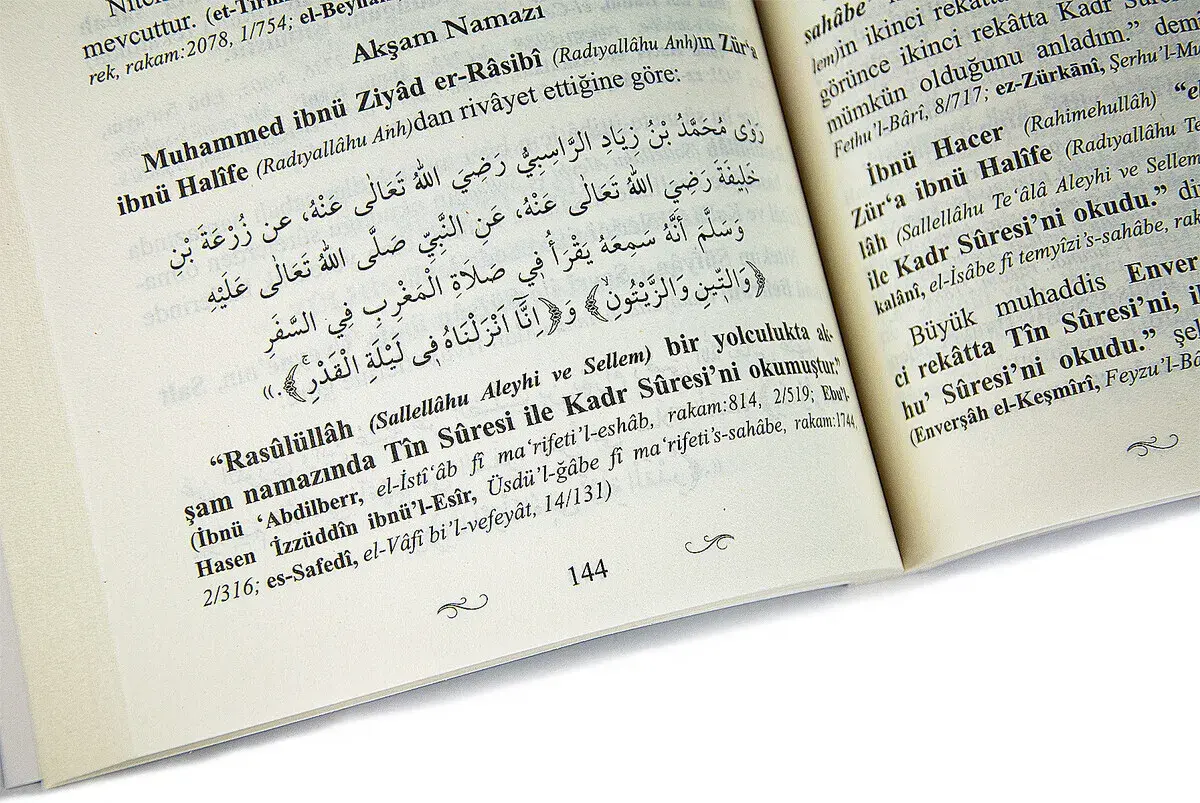 mevcuttur. (et-Tirm
rek, rakam:2078, 1/754; el-Beyhak
Akşam Namazı
Muhammed ibnü Ziyâd er-Râsibî (Radıyallâhu Anh)ın Zür‘a
ibnü Halîfe (Radıyallâhu Anh)dan rivâyet ettiğine göre:
رَوٰى مُحَمَّدُ بْنُ زِيَادٍ الرَّاسِبِيُّ رَضِيَ اللّٰهُ تَعَالٰى عَنْهُ، عَنْ زُرْعَةَ بْنِ
خَلِيفَةَ رَضِيَ اللّٰهُ تَعَالٰى عَنْهُ، عَنِ النَّبِيِّ صَلَّى اللّٰهُ تَعَالٰى عَلَيْهِ
وَسَلَّمَ أَنَّهُ سَمِعَهُ يَقْرَأُ فِي صَلَاةِ الْمَغْرِبِ فِي السَّفَرِ
﴿وَالتِّينِ وَالزَّيْتُونِ﴾ وَ﴿اِنَّٓا اَنْزَلْنَاهُ فِي لَيْلَةِ الْقَدْرِ﴾.»
“Rasûlüllâh (Sallellâhu Aleyhi ve Sellem) bir yolculukta ak-
şam namazında Tîn Sûresi ile Kadr Sûresi’ni okumuştur.”
(İbnü ‘Abdilberr, el-İstî‘âb fî ma‘rifeti’l-eshâb, rakam:814, 2/519; Ebu’l-
Hasen ‘İzzüddîn ibnü’l-Esîr, Üsdü’l-ğâbe fî ma‘rifeti’s-sahâbe, rakam:1744,
2/316; es-Safedî, el-Vâfî bi’l-vefeyât, 14/131)
144
sahâbe
lem)in ikinci rekâtta Kadr Sûre
görünce ikinci rekâtta Kadr Sûre
mümkün olduğunu anladım.” dem
Fethu’l-Bârî, 8/717; ez-Zürkānî, Şerhu’l-Mu
İbnü Hacer (Rahimehullâh) “el
Zür‘a ibnü Halîfe (Radıyallâhu Te
lâh (Sallellâhu Te‘âlâ Aleyhi ve Sellem
ile Kadr Sûresi’ni okudu.” di
kalânî, el-İsâbe fî temyîzi’s-sahâbe, rak
Büyük muhaddis Enver
ci rekâtta Tîn Sûresi’ni, ik
hu’ Sûresi’ni okudu.” şek
(Enverşâh el-Keşmîrî, Feyzu’l-Bâ